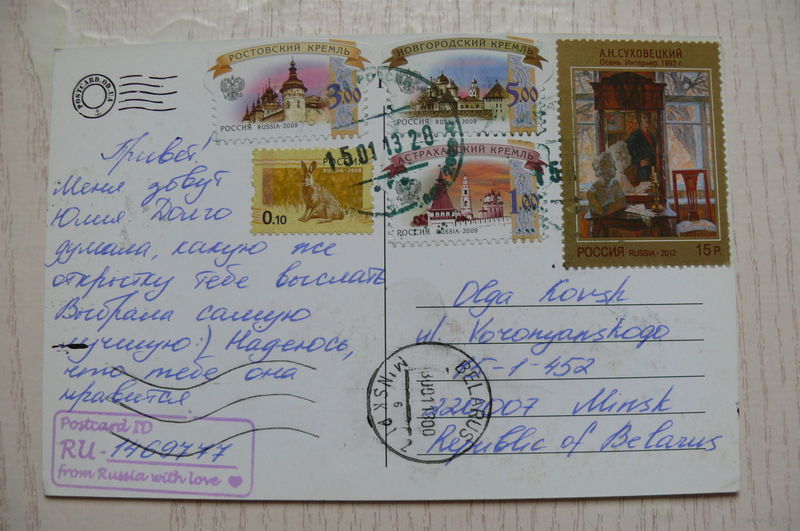 POSTCARD.OD.UA
РОСТОВСКИЙ КРЕМЛЬ
3.00
РОССИЯ RUSSIA·2009
НОВГОРОДСКИЙ КРЕМЛЬ
5.00
РОССИЯ RUSSIA·2009
А.Н.СУХОВЕЦКИЙ
Осень. Интерьер. 1992 г.
РОССИЯ RUSSIA·2012 15 Р.
15.01 13 20
РОССИЯ
RUSSIA·2008
0.10
АСТРАХАНСКИЙ КРЕМЛЬ
1.00
РОССИЯ RUSSIA·2009
Привет!
Меня зовут
Юлия Долго
думала, какую же
открытку тебе выслать
Выбрала самую
лучшую:) Надеюсь,
что тебе она
нравится.
Postcard ID
RU-1469747
from Russia with love
Olga Kovsh
ul. Voronyanskogo
15-1-452
220007 Minsk
Republic of Belarus
BELARUS
MINSK